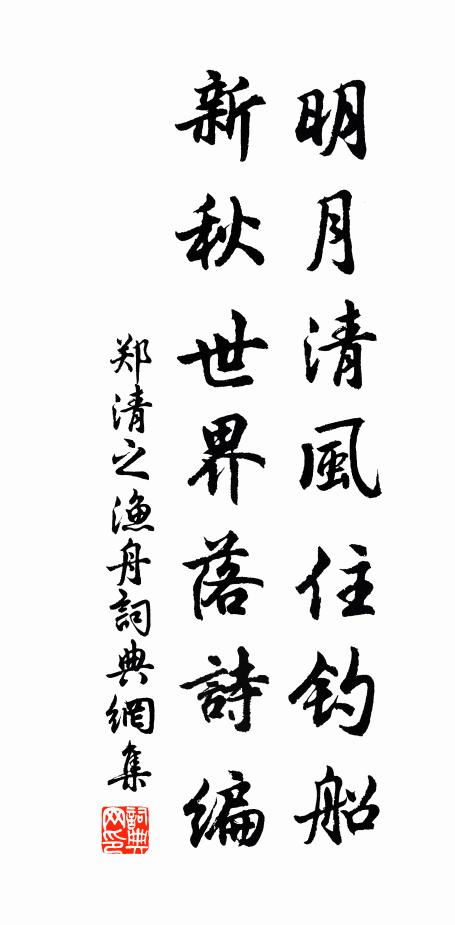 明月清風住钓船
新秋世界落詩编
郑清之渔舟詞典網集
詞典网印